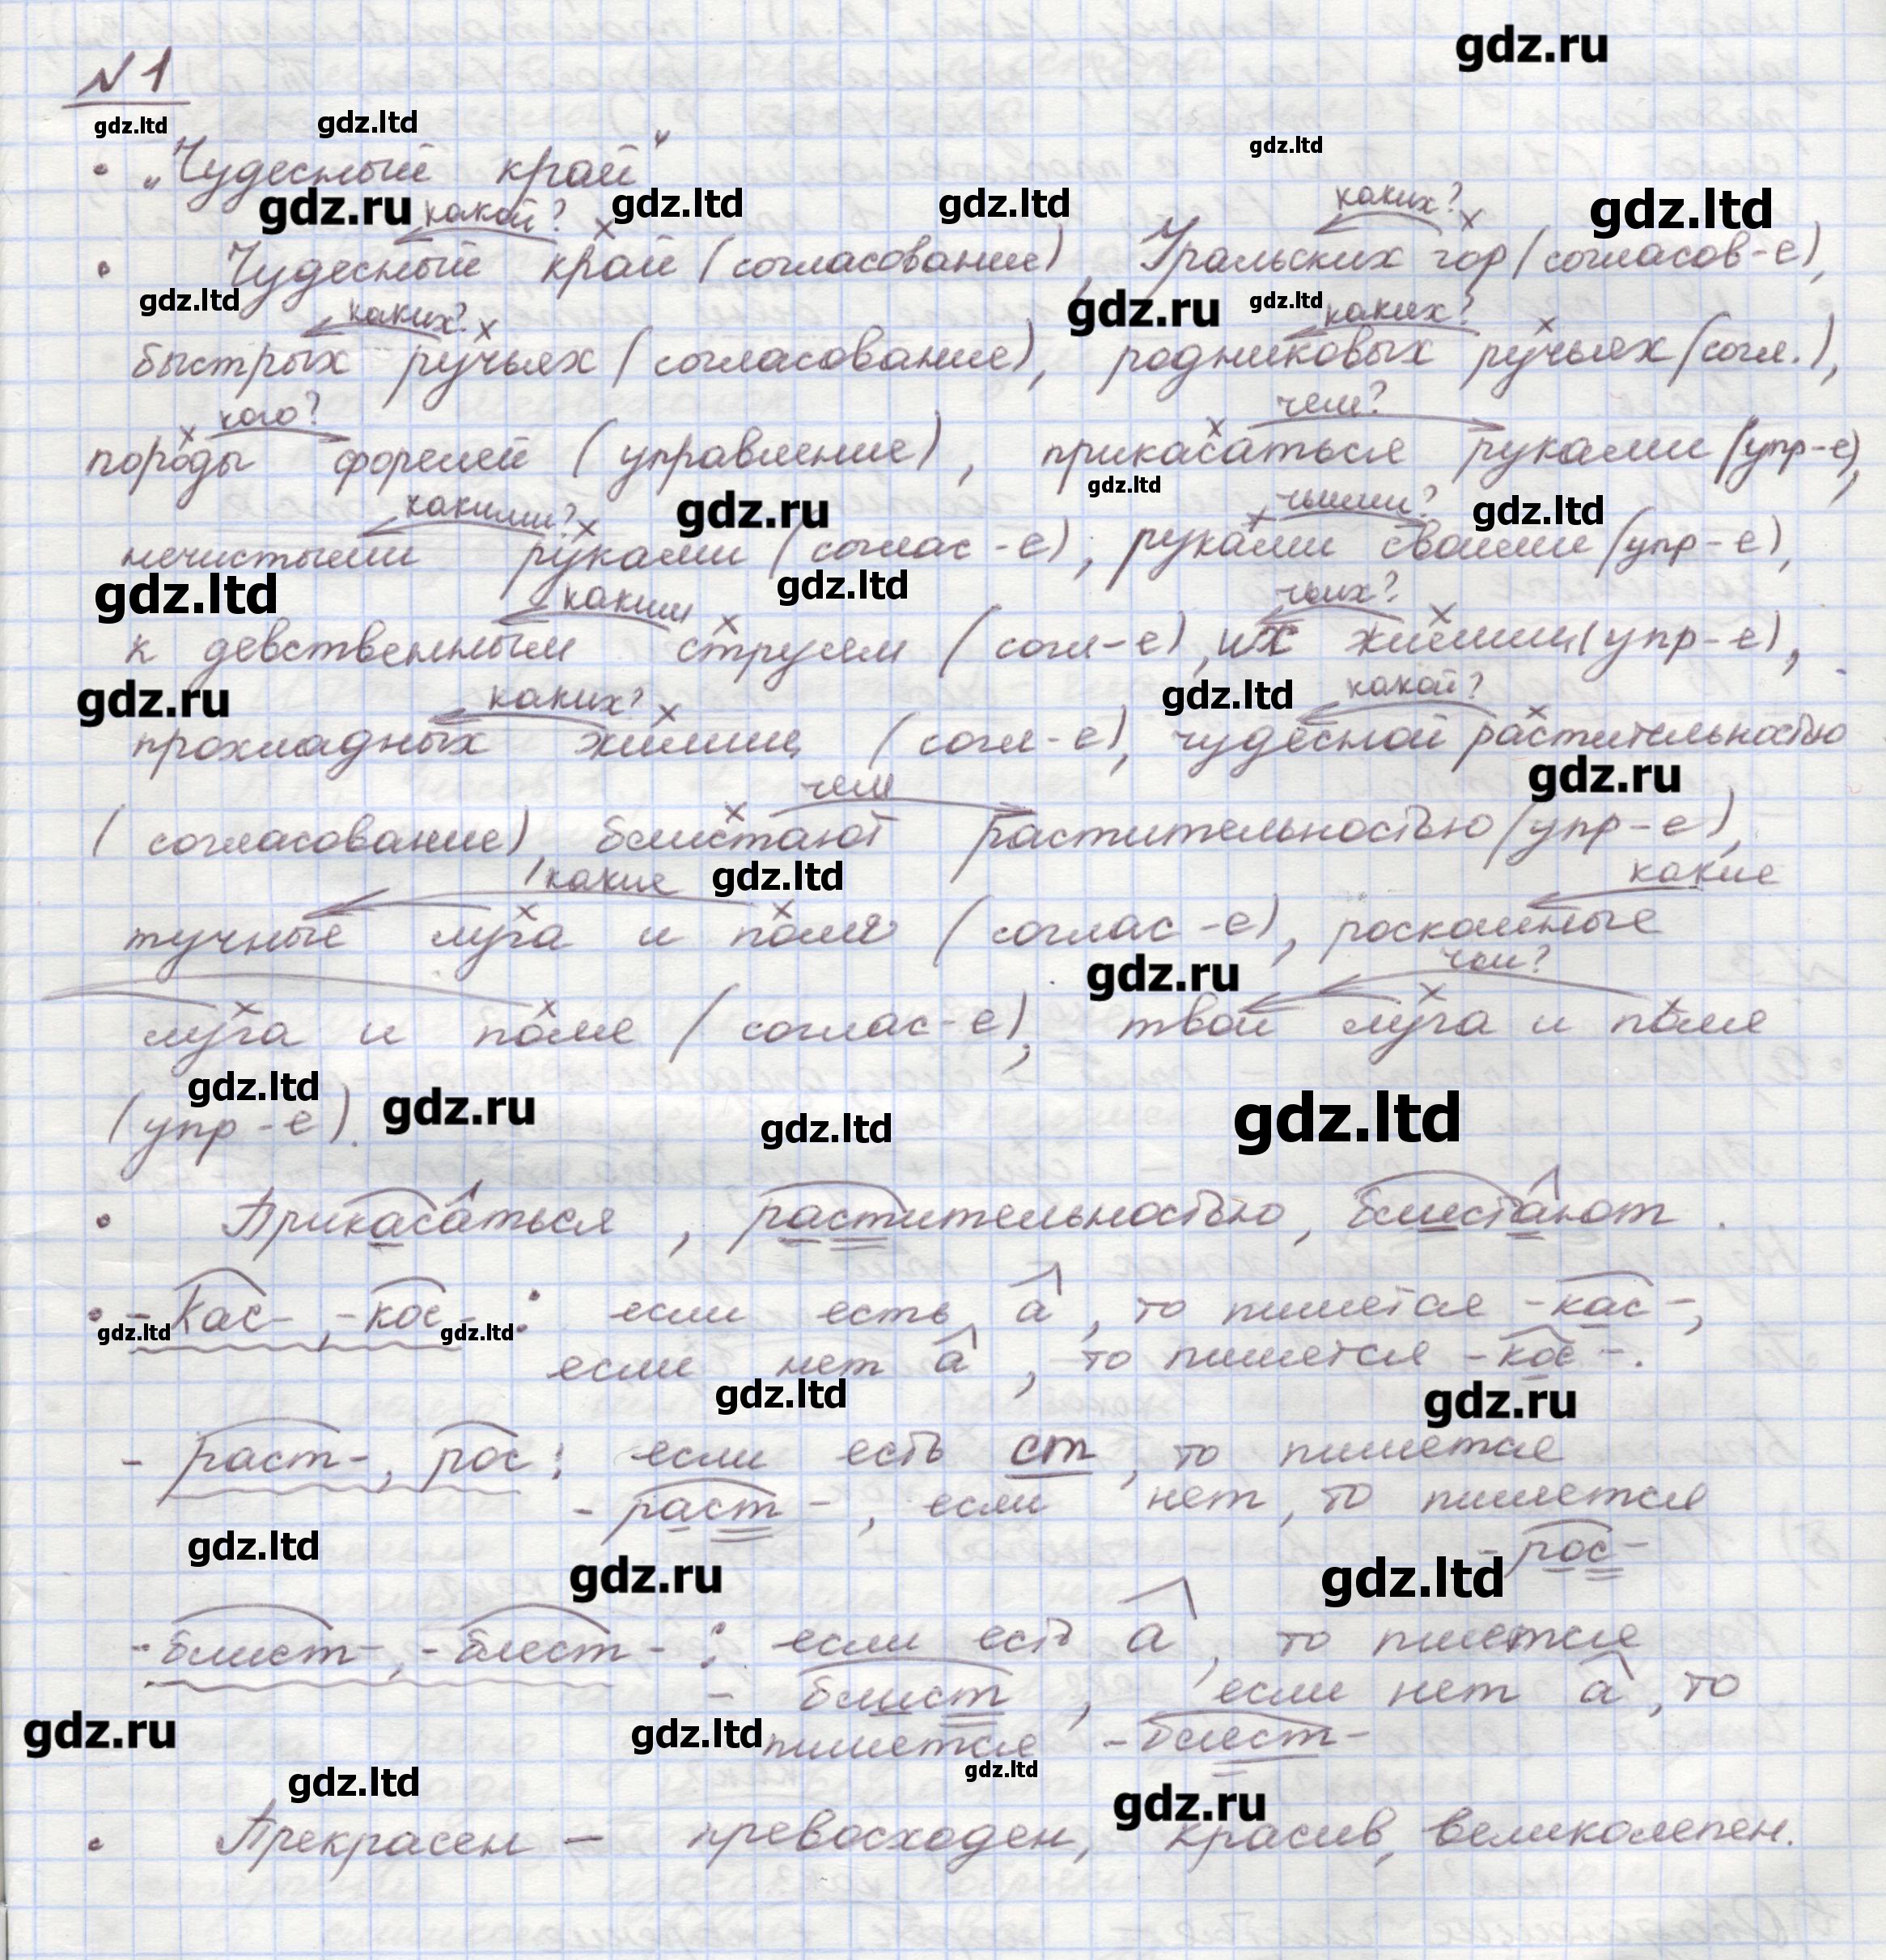 gdz.ru
№1
gdz.ltd gdz.ltd gdz.ltd
• „Чудесный край"
gdz.ru какой? gdz.ltd gdz.ltd каких? gdz.ltd
• Чудесный край (согласование), Уральских гор (согласов-е),
gdz.ltd каких? gdz.ru gdz.ltd каких?
быстрых ручьях (согласование), родниковых ручьях (согл.),
кого? чем?
породы форелей (управление), прикасаться руками (упр-е),
какими? gdz.ru gdz.ltd чьими? gdz.ltd
нечистыми руками (соглас-е), руками своими (упр-е),
gdz.ltd каким gdz.ltd чьих?
к девственным струям (согл-е), их жилищ (упр-е),
gdz.ru каких? gdz.ltd какой?
прохладных жилищ (согл-е), чудесной растительностью
чем gdz.ru
(согласование) блистают растительностью (упр-е),
какие gdz.ltd какие
тучные луга и поля (соглас-е), роскошные
gdz.ru чьи?
луга и поля (соглас-е), твои луга и поля
gdz.ltd gdz.ru gdz.ltd gdz.ltd
(упр-е).
• Прикасаться, растительностью, блистают.
• -кас-, -кос-: если есть а, то пишется -кас-,
gdz.ltd gdz.ltd
если нет а, то пишется -кос-.
gdz.ltd gdz.ru
- раст-, рос: если есть ст, то пишется
-раст-, если нет, то пишется
gdz.ltd gdz.ru gdz.ltd -рос-
-блист-, -блест-: если есть а, то пишется
- блист, если нет а, то
gdz.ru gdz.ltd пишется -блест-
gdz.ltd gdz.ltd gdz.ru
• Прекрасен — превосходен, красив, великолепен.